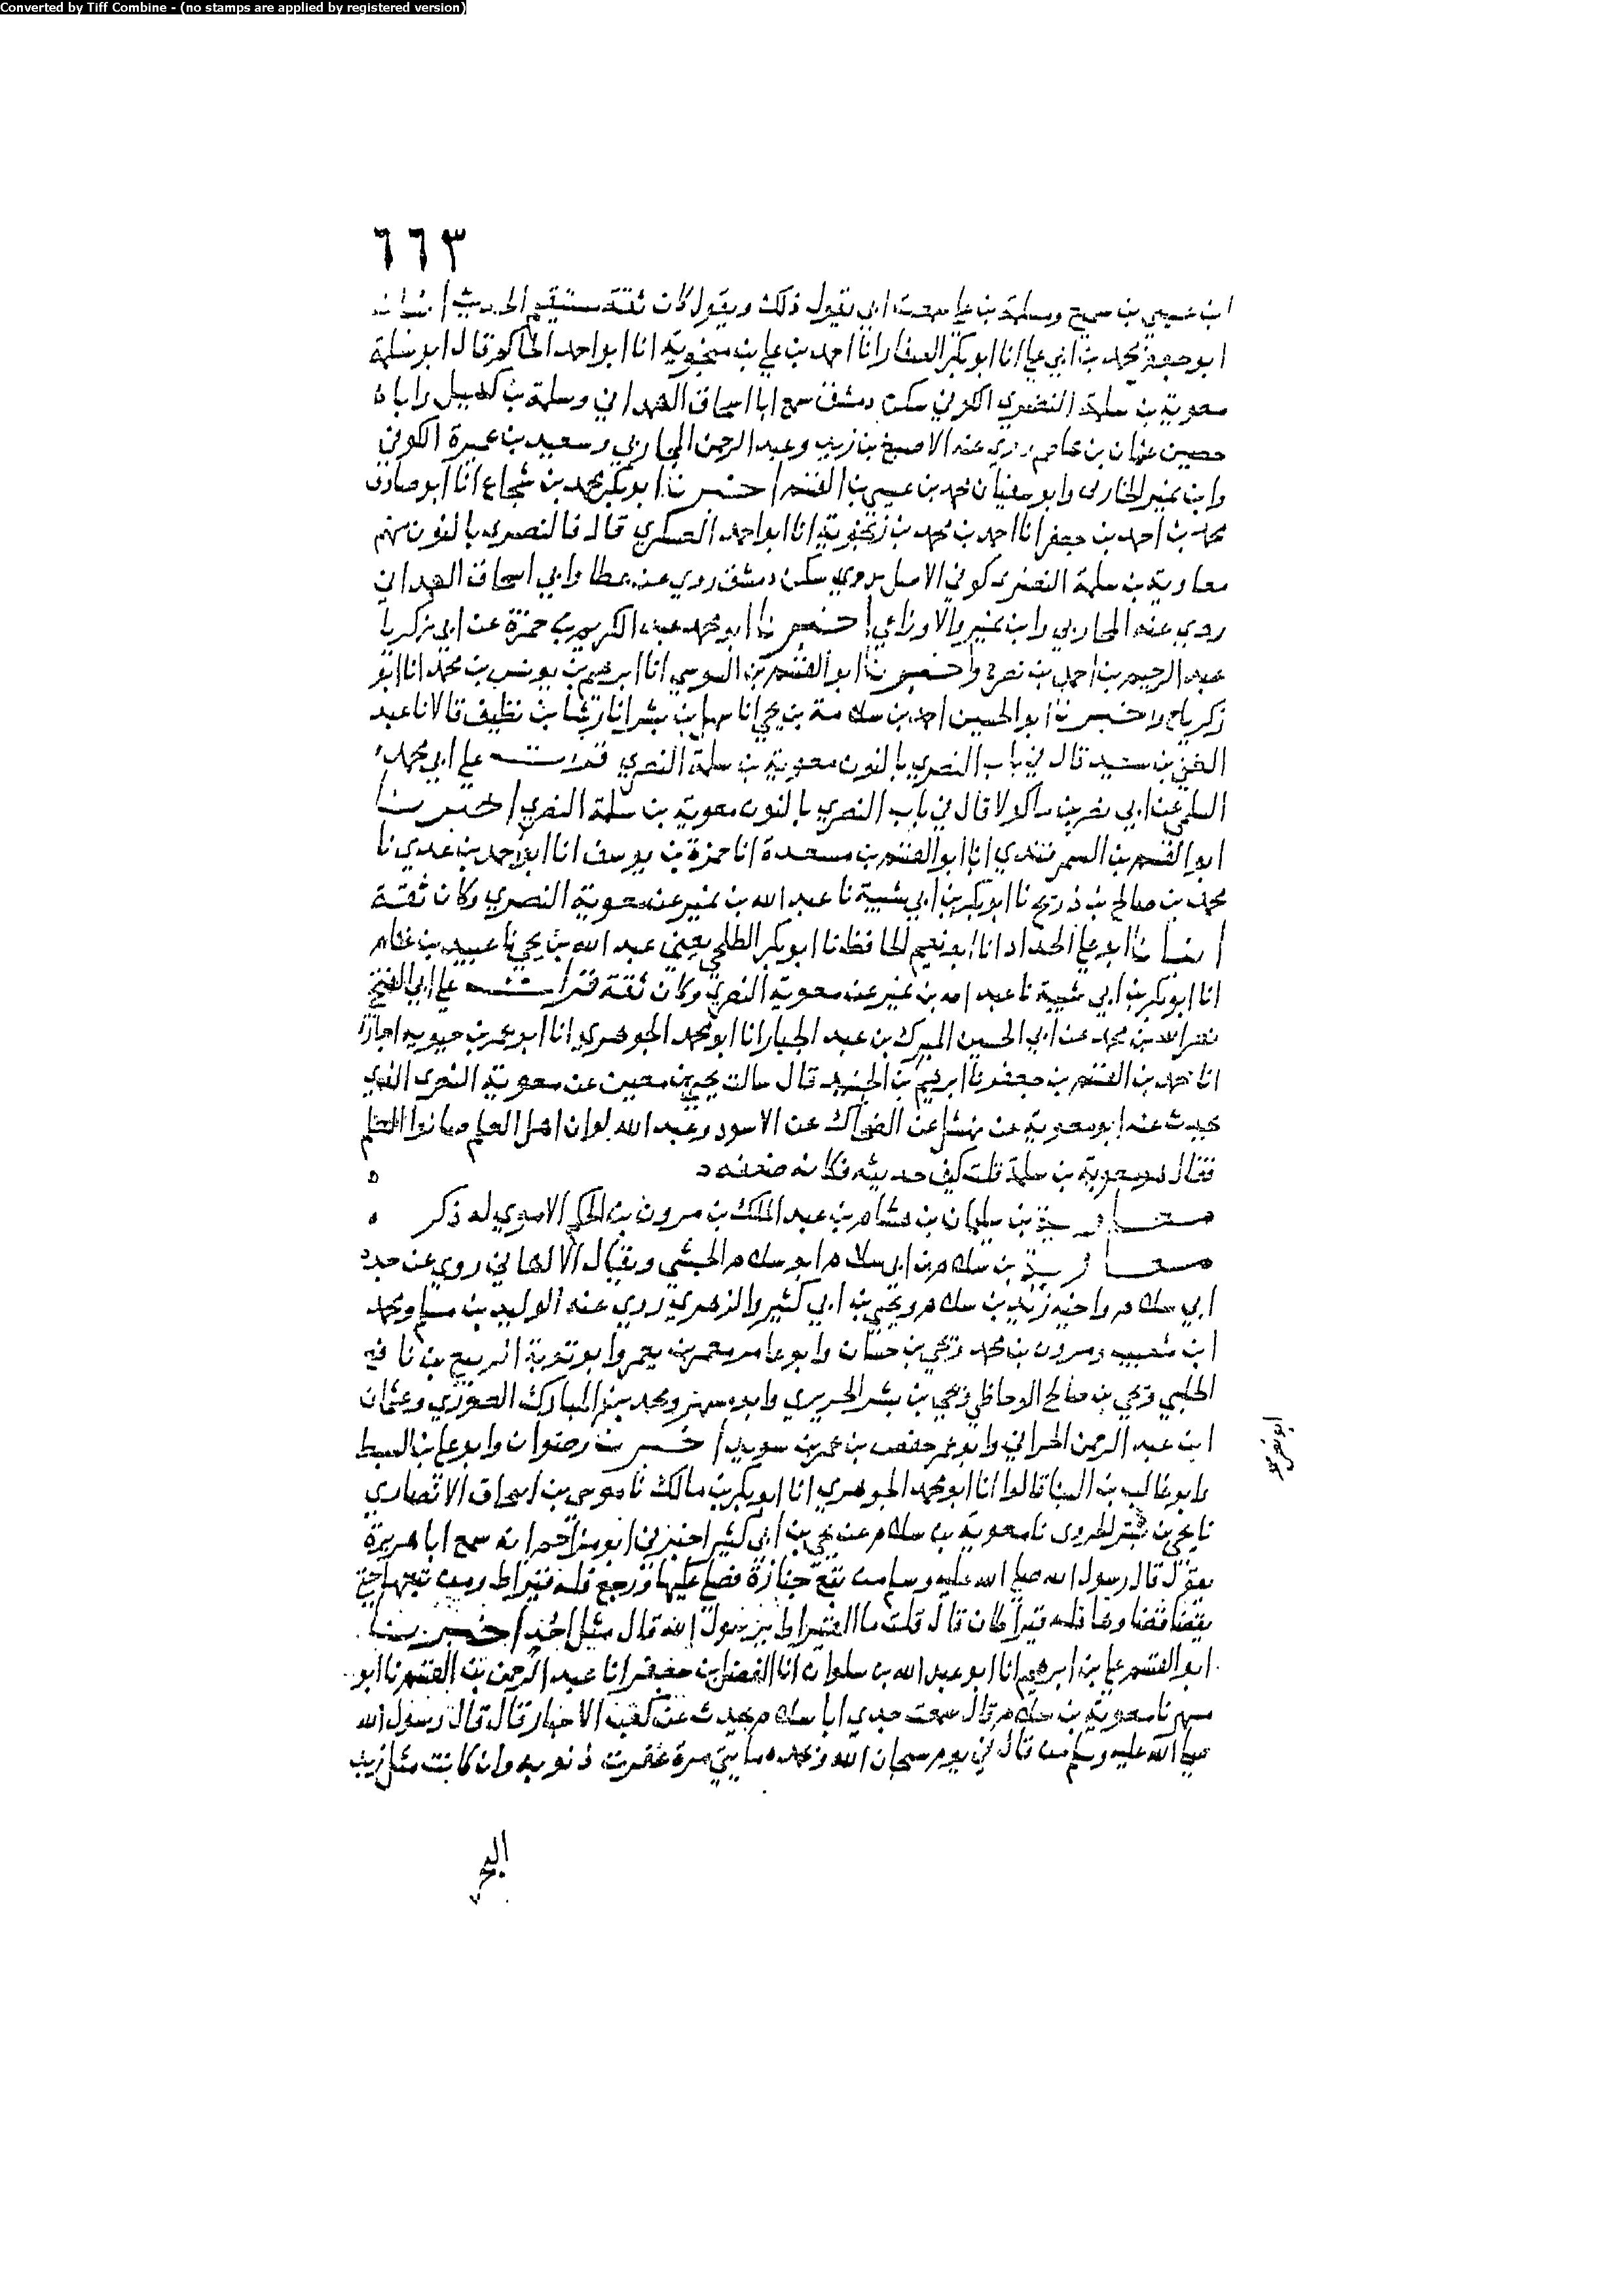 Converted by Tiff Combine - (no stamps are applied by registered version)
٦٦٣
ابن عيسى بن سميع ومسلمة بن علي سمعت ابي يقول ذلك ويقول كان ثقة مستقيم الحديث انبانا
ابو جعفر محمد بن ابي علي انا ابو بكر الصفار انا احمد بن علي بن منجويه انا ابو احمد الحاكم قال ابو سلمة
معوية بن سلمة النصري الكوفي سكن دمشق سمع ابا اسحاق الهمداني وسلمة بن كهيل وابا
حصين عثمان بن عاصم روى عنه الاصبغ بن زيد وعبد الرحمن المحاربي وسعيد بن عميرة الكوفي
وابن نمير الخارفي وابو سفيان محمد بن عيسى بن القسم اخبرنا ابو بكر محمد بن شجاع انا ابو صادق
محمد بن احمد بن جعفر انا احمد بن محمد بن زنجويه انا ابو احمد العسكري قال فالنصري بالنون منهم
معاوية بن سلمة النصري كوفي الاصل سكن دمشق روى عن عطا وابي اسحاق الهمداني
روى عنه المحاربي وابن نمير والاوزاعي اخبرنا ابو محمد عبد الكريم بن حمزة عن ابي زكريا
عبد الرحيم بن احمد بن نصر ح واخبرنا ابو القسم بن السوسي انا ابرهيم بن يونس بن محمد انا ابو
زكريا ح واخبرنا ابو الحسين احمد بن سلامة بن يحيى انا سهل بن بشر انا رشا بن نظيف قالا نا عبد
الغني بن سعيد قال في باب النصري بالنون معوية بن سلمة النصري قرات على ابي محمد
السلمي عن ابي نصر بن ماكولا قال في باب النصري بالنون معوية بن سلمة النصري اخبرنا
ابو القسم بن السمرقندي انا ابو القسم بن مسعدة انا حمزة بن يوسف انا ابو احمد بن عدي نا
محمد بن صالح بن ذريح نا ابو بكر بن ابي شيبة نا عبد الله بن نمير عن معوية النصري وكان ثقة
انبانا ابو علي الحداد انا ابو نعيم الحافظ نا ابو بكر الطلحي يعني عبد الله بن يحيى نا عبيد بن غنام
انا ابو بكر بن ابي شيبة نا عبد الله بن نمير عن معوية النصري وكان ثقة قرات على ابي الفتح
نصر الله بن محمد عن ابي الحسين المبرك بن عبد الجبار انا ابو محمد الجوهري انا ابو عمر بن حيويه اجازة
انا محمد بن القسم بن جعفر نا ابرهيم بن الجنيد قال سالت يحيى بن معين عن معوية النصري الذي
يحدث عنه ابو معوية عن نهشل عن الضحاك عن الاسود وعبد الله لو ان اهل العلم صانوا العلم
فقال معوية بن سلمة قلت كيف حديثه فكانه ضعفه
معاوية بن سليمان بن هشام بن عبد الملك بن مرون بن الحكم الاموي له ذكر
معاوية بن سلام بن ابي سلام ابو سلام الحبشي ويقال الالهاني روى عن جده
ابي سلام واخيه زيد بن سلام ويحيى بن ابي كثير والزهري روى عنه الوليد بن مسلم ومحمد
ابن شعيب ومرون بن محمد ويحيى بن حسان وابو عامر معمر بن يعمر وابو توبة الربيع بن نافع
الحلبي ويحيى بن صالح الوحاظي ويحيى بن بشر الحريري وابو مسهر ومحمد بن المبارك الصوري وعثمان
ابن عبد الرحمن الحراني وابو عمر حفص بن عمر بن سويد اخبرنا رضوان وابو علي بن السبط
ابو نصر بن
وابو غالب بن البنا قالوا انا ابو محمد الجوهري انا ابو بكر بن مالك نا موسى بن اسحاق الانصاري
نا يحيى بن بشر الحريري نا معوية بن سلام عن يحيى بن ابي كثير اخبرني ابو مزاحم انه سمع ابا هريرة
يقول قال رسول الله صلى الله عليه وسلم من تبع جنازة فصلى عليها ورجع فله قيراط ومن تبعها حتى
يقضا قضاوها فله قيراطان قال قلت ما القيراط يا رسول الله قال مثل احد اخبرنا
ابو القسم علي بن ابرهيم انا ابو عبد الله بن سلوان انا الفضل بن جعفر انا عبد الرحمن بن القسم نا ابو
مسهر نا معوية بن سلام قال سمعت جدي ابا سلام يحدث عن كعب الاحبار قال قال رسول الله
صلى الله عليه وسلم من قال في يوم سبحان الله وبحمده مايتي مرة غفرت ذنوبه وان كانت مثل زبد
البحر